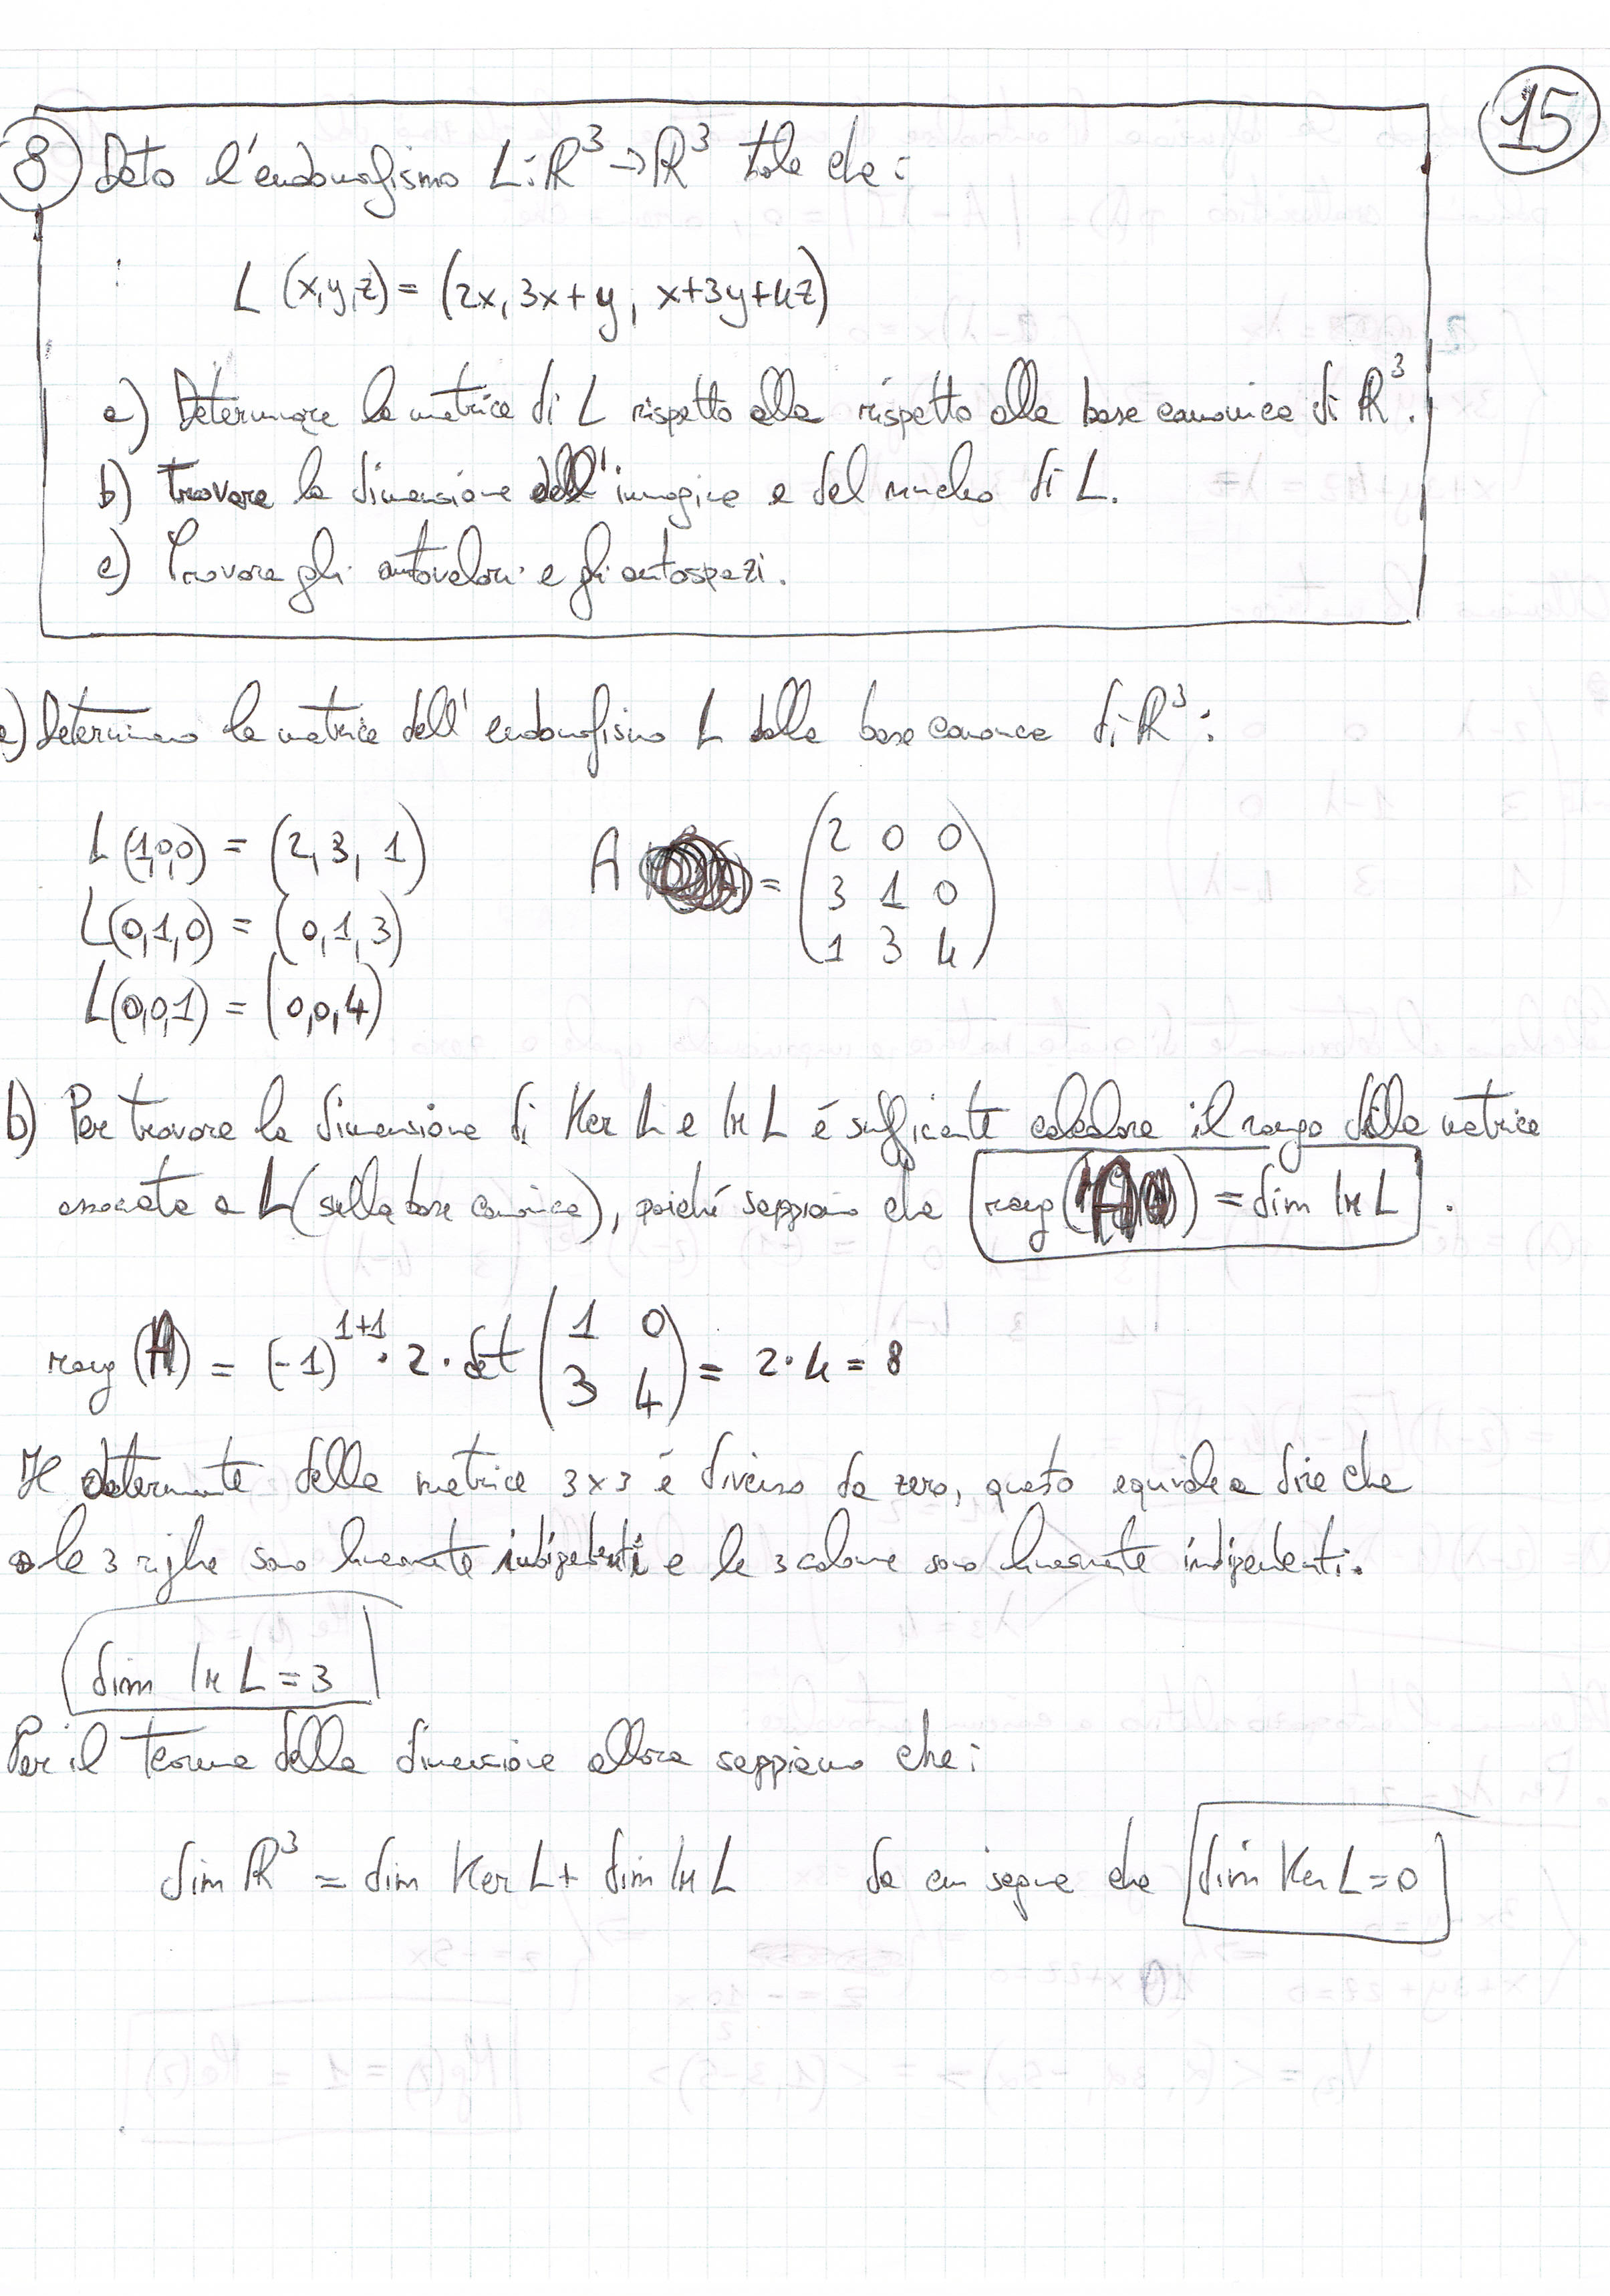 15
8) Dato l'endomorfismo L: ℝ³ → ℝ³ tale che:
L (x,y,z) = (2x, 3x+y, x+3y+4z)
a) Determinare la matrice di L rispetto alla rispetto alla base canonica di ℝ³.
b) Trovare la dimensione dell'immagine e del nucleo di L.
c) Trovare gli autovalori e gli autospazi.
a) Determiniamo la matrice dell'endomorfismo L dalla base canonica di ℝ³:
L(1,0,0) = (2, 3, 1)
L(0,1,0) = (0,1,3)
L(0,0,1) = (0,0,4)
A = (2 0 0
3 1 0
1 3 4)
b) Per trovare la dimensione di Ker L e Im L é sufficiente calcolare il rango della matrice
associata a L (sulla base canonica), poiché sappiamo che rang(A) = dim Im L.
rang (A) = (-1)^{1+1} · 2 · det (1 0
3 4) = 2·4 = 8
Il determinante della matrice 3x3 é diverso da zero, questo equivale a dire che
le 3 righe sono linearmente indipendenti e le 3 colonne sono linearmente indipendenti.
dim Im L = 3
Per il teorema della dimensione allora sappiamo che:
dim ℝ³ = dim Ker L + dim Im L da cui segue che dim Ker L = 0